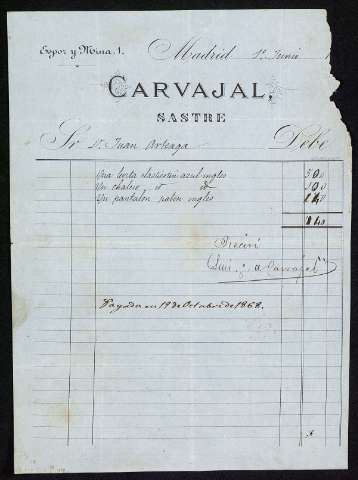 Espoz y Mina, 1. Madrid 1º Junio
CARVAJAL,
SASTRE
Sr. Dn. Juan Arteaga Debe
Una levita elasticotin azul ingles 500
Un chaleco id id 100
Un pantalon paten ingles
Recivi
Luis G. de Carvajal
Pagada en 19 de Octubre de 1868.